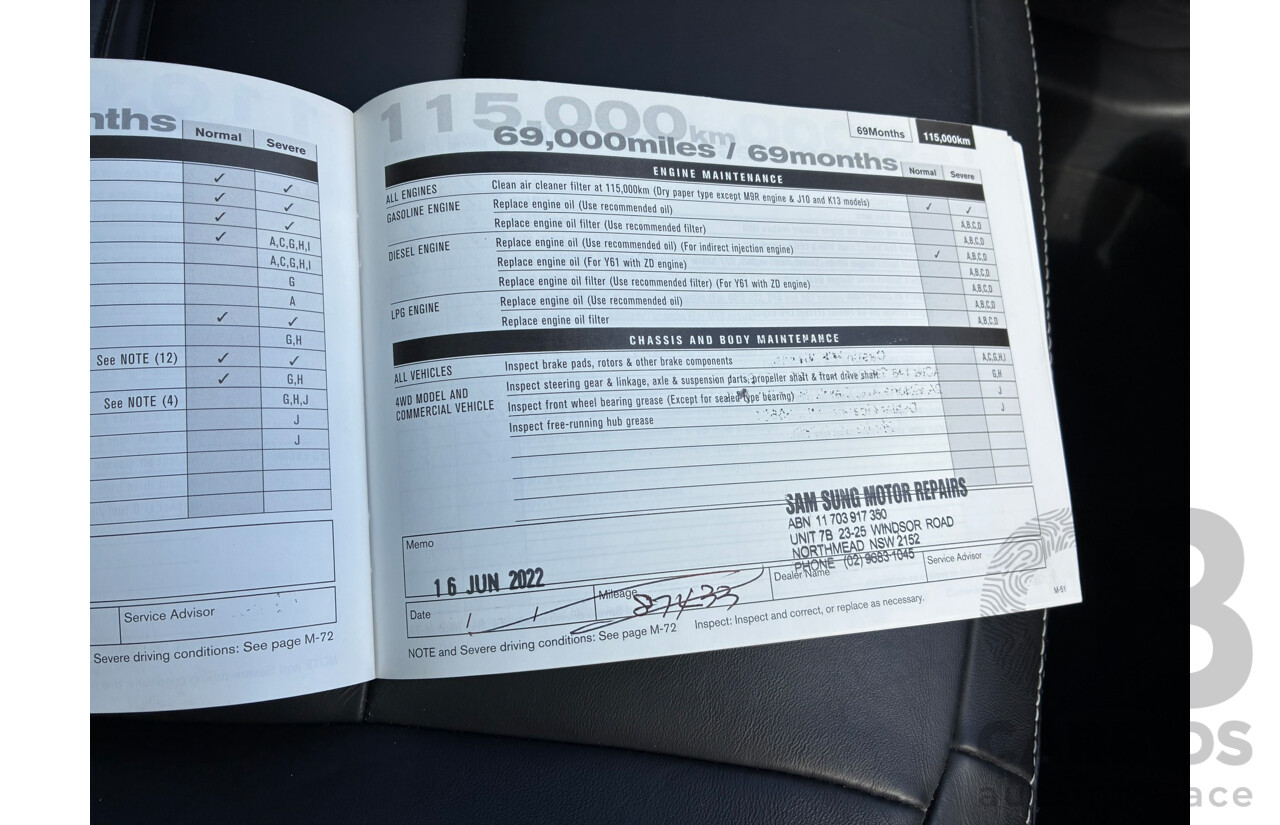 nths
Normal
Severe
✓
✓
✓
✓
✓
✓
✓
A,C,G,H,I
A,C,G,H,I
G
A
✓
✓
G,H
See NOTE (12)
✓
✓
✓
G,H
See NOTE (4)
G,H,J
J
J
Service Advisor
Severe driving conditions: See page M-72
115,000km
69,000miles / 69months
69Months
115,000km
Normal
Severe
ENGINE MAINTENANCE
ALL ENGINES
Clean air cleaner filter at 115,000km (Dry paper type except M9R engine & J10 and K13 models)
✓
✓
GASOLINE ENGINE
Replace engine oil (Use recommended oil)
A,B,C,D
Replace engine oil filter (Use recommended filter)
A,B,C,D
DIESEL ENGINE
Replace engine oil (Use recommended oil) (For indirect injection engine)
✓
A,B,C,D
Replace engine oil (For Y61 with ZD engine)
A,B,C,D
Replace engine oil filter (Use recommended filter) (For Y61 with ZD engine)
A,B,C,D
LPG ENGINE
Replace engine oil (Use recommended oil)
A,B,C,D
Replace engine oil filter
A,B,C,D
CHASSIS AND BODY MAINTENANCE
ALL VEHICLES
Inspect brake pads, rotors & other brake components
A,C,G,H,I
4WD MODEL AND
COMMERCIAL VEHICLE
Inspect steering gear & linkage, axle & suspension parts, propeller shaft & front drive shaft
G,H
Inspect front wheel bearing grease (Except for sealed type bearing)
J
Inspect free-running hub grease
J
SAM SUNG MOTOR REPAIRS
ABN 11 703 917 350
UNIT 7B 23-25 WINDSOR ROAD
NORTHMEAD NSW 2152
PHONE (02) 9683 1045
Memo
16 JUN 2022
Date / /
Mileage
87433
Dealer Name
Service Advisor
NOTE and Severe driving conditions: See page M-72
Inspect: Inspect and correct, or replace as necessary.
M-51